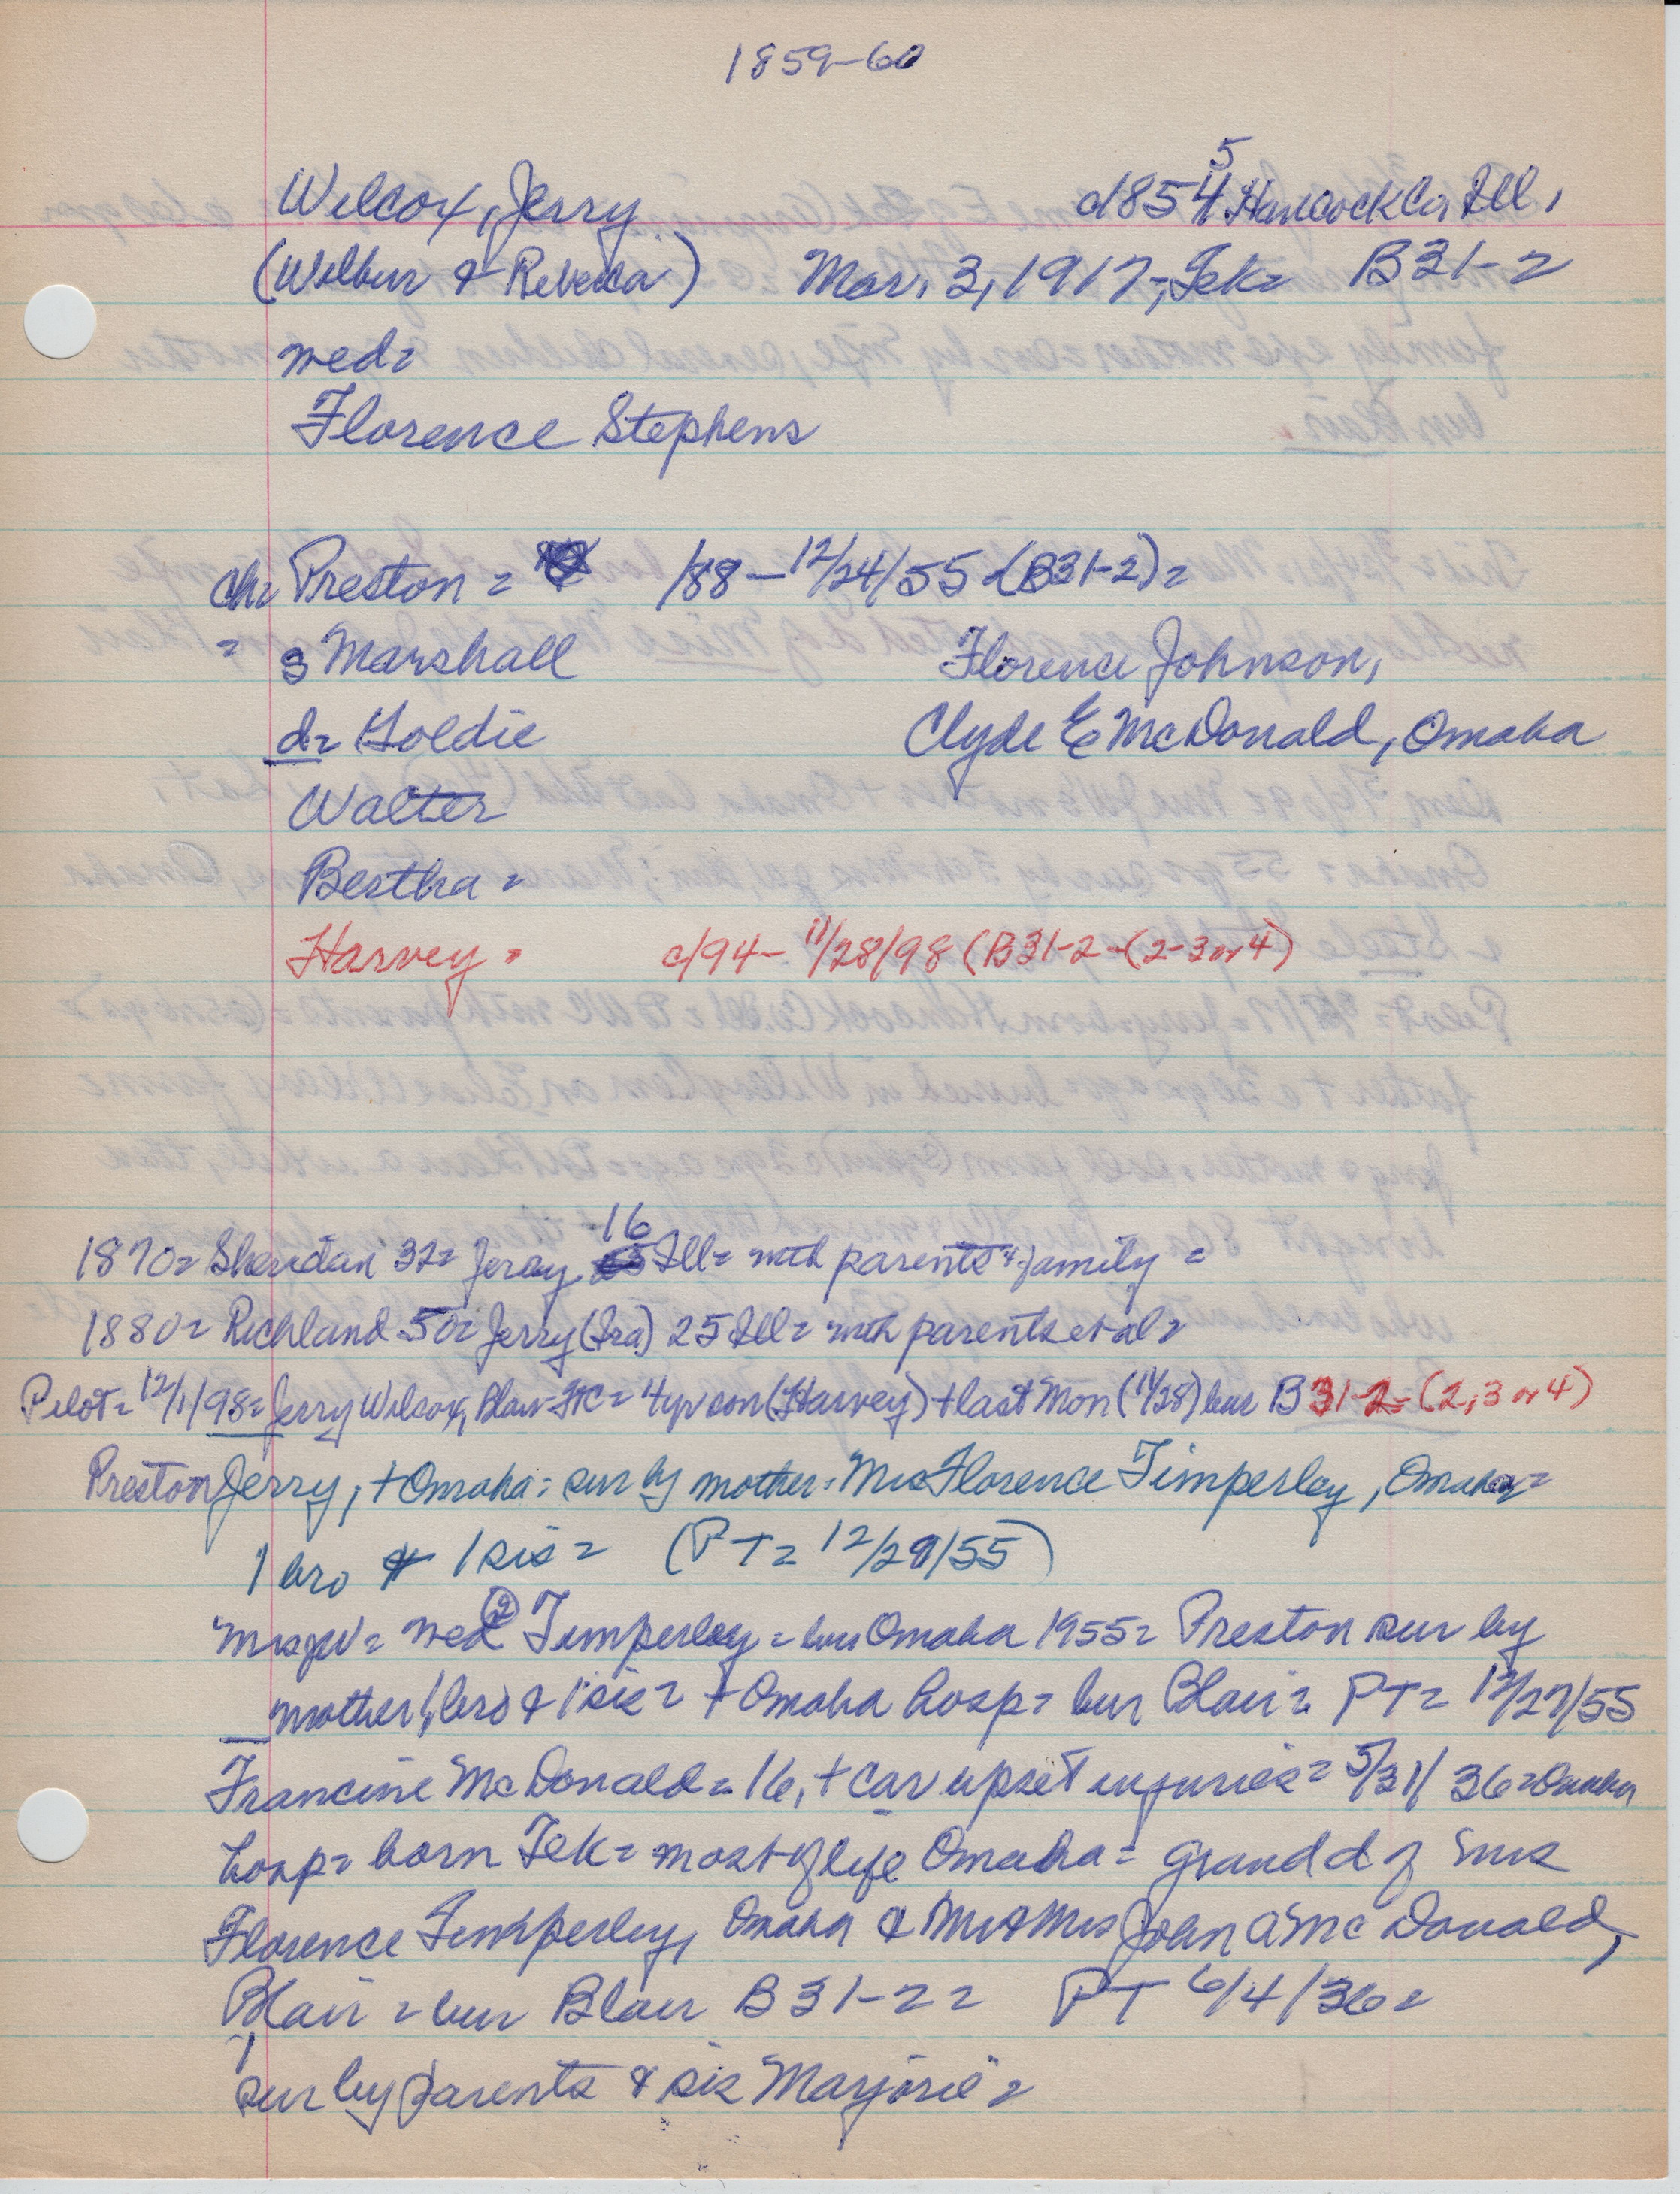 1859-60
5
Wilcox, Jerry c/1854 Hancock Co, Ill,
(Wilbur & Rebecca) Mar. 3, 1917-, Tek= B31-2
med=
Florence Stephens
ch= Preston = /88-12/24/55-(B31-2)=
= s Marshall Florence Johnson,
d= Goldie Clyde E McDonald, Omaha
Walter
Bertha =
Harvey = c/94- 11/28/98 (B31-2-(2-3 or 4)
16
1870= Sheridan 32= Jerry Ill= with parents & family =
1880= Richland 50= Jerry (Ira) 25 Ill= with parents et al=
Pilot= 12/1/98= Jerry Wilcox, Blair = 4 yr son (Harvey) + last Mon (11/28) bur B31-2= (2, 3 or 4)
Preston Jerry, + Omaha: sur by mother: Mrs Florence Timperley, Omaha=
1 bro & 1 sis = (PT= 12/29/55)
Mrs JW= med (2) Timperley = Omaha 1955= Preston sur by
mother, 1 bro & 1 sis = + Omaha hosp= bur Blair= PT= 12/27/55
Francine McDonald= 16, + car upset injuries= 5/31/36=Omaha
hosp= born Tek= most of life Omaha= grand d of Mrs
Florence Timperley, Omaha & Mr & Mrs John A McDonald,
Blair = bur Blair B31-2= PT 6/4/36=
sur by parents & sis Marjorie=